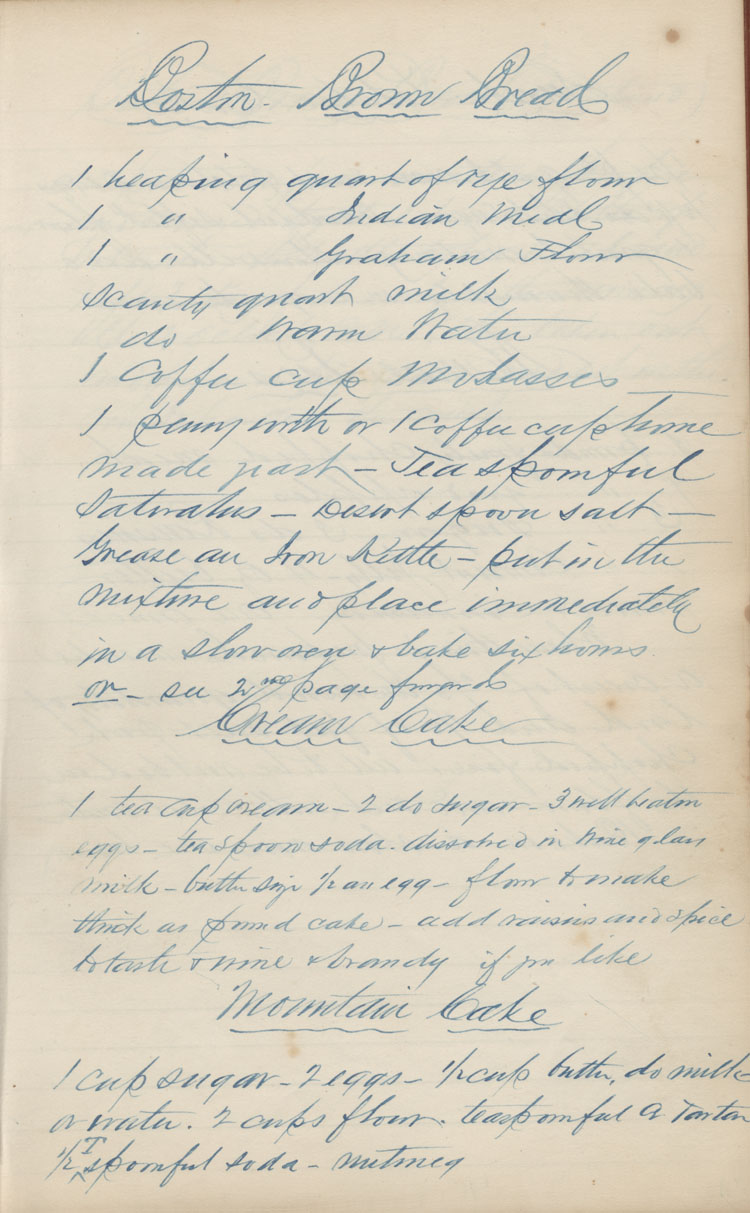 Boston Brown Bread
1 heaping quart of rye flour
1 " Indian Meal
1 " Graham Flour
Scanty quart milk
do Warm Water
1 Coffee cup Molasses
1 pennyworth or 1 coffee cup home
made yeast - Teaspoonful
Saleratus - Desert spoon salt -
Grease an Iron Kettle - put in the
mixture and place immediately
in a slow oven & bake six hours
or - see 2nd page forwards
Cream Cake
1 tea cup cream - 2 do sugar - 3 well beaten
eggs - tea spoon soda - dissolved in wine glass
milk - butter size 1/2 an egg - flour to make
thick as pound cake - add raisins and spice
to taste & wine & brandy if you like
Mountain Cake
1 cup sugar - 2 eggs - 1/2 cup butter, do milk
or water. 2 cups flour. teaspoonful C Tartar
1/2 T spoonful soda - nutmeg